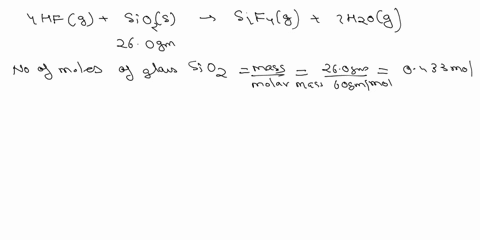 4HF(g) + SiO2(s) → SiF4(g) + 2H2O(g)
26.0gm
No of moles of glass SiO2 = mass/molar mass = 26.0gms/60gm/mol = 0.433mol